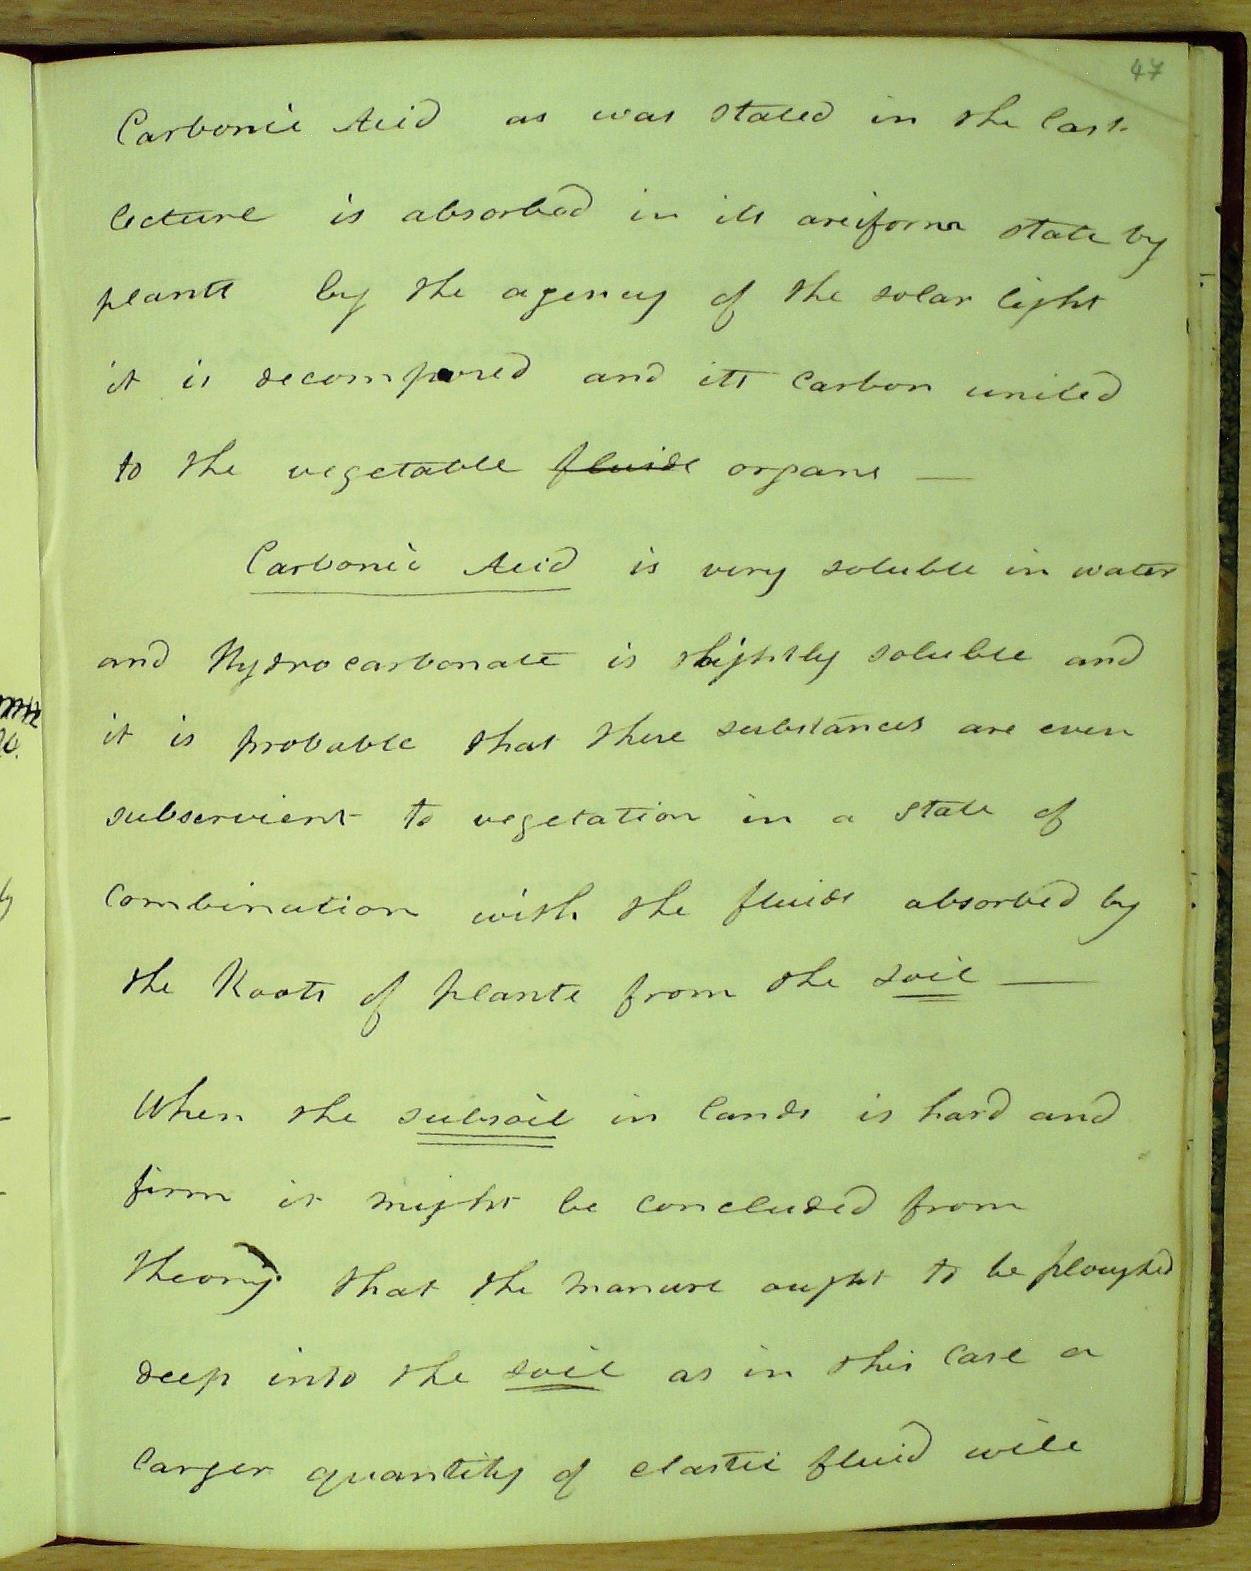 47
Carbonic Acid as was stated in the last
lecture is absorbed in its areiform state by
plants by the agency of the solar light
it is decomposed and its carbon united
to the vegetable fluids organs —
Carbonic Acid is very soluble in water
and Hydrocarbonate is slightly soluble and
it is probable that these substances are even
subservient to vegetation in a state of
combination with the fluids absorbed by
the Roots of plants from the soil —
When the subsoil in lands is hard and
firm it might be concluded from
theory that the manure ought to be ploughed
deep into the soil as in this case a
larger quantity of elastic fluid will